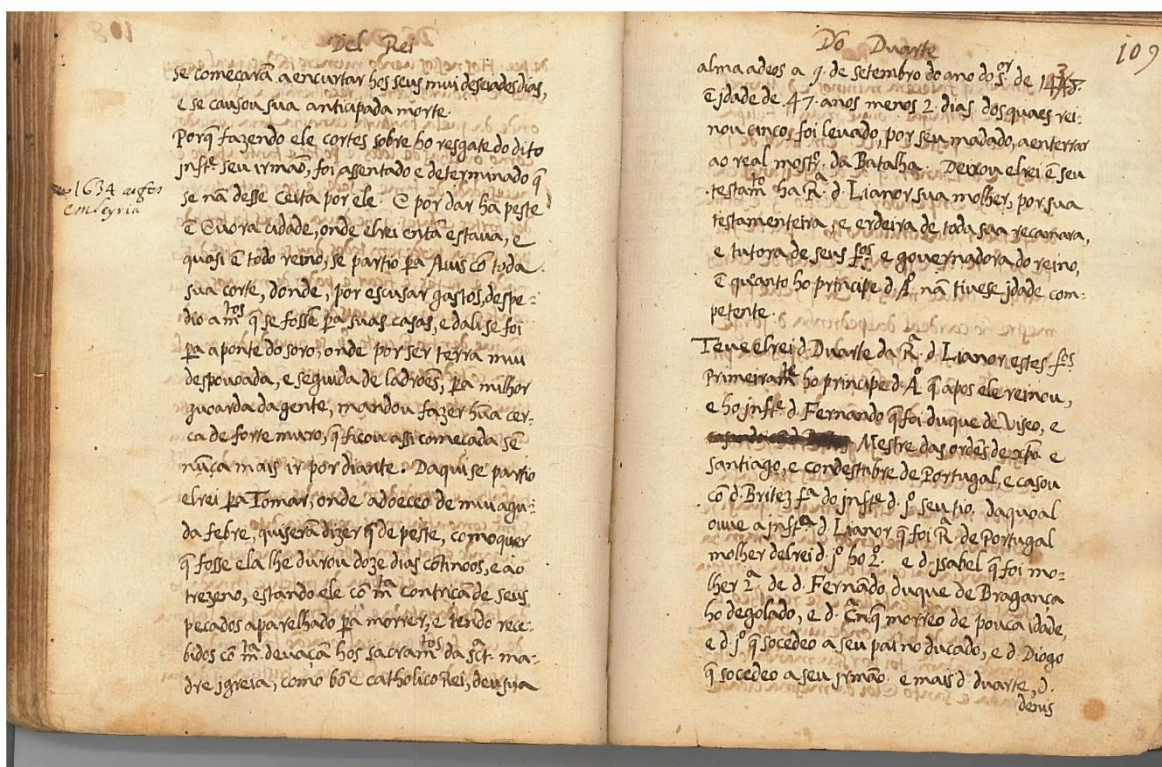 Del Rei
se começarã a encurtar hos seus mui deseiados dias,
e se causou sua anticipada morte.
Porq̃ fazendo ele cortes sobre ho resgate do dito
jnfte seu irmão, foi assentado e determinado q̃
se nam desse Ceita por ele. E por dar ha peste
ẽ Evora cidade, onde elrei entã estava, e
quasi ẽ todo reino, se partio pa Avis cõ toda
sua corte, donde, por escusar gastos, despe-
dio a mtos q̃ se fossẽ pa suas casas, e dali se foi
pa a ponte do soro, onde por ser terra mui
despovoada, e seguida de ladrões, pa milhor
guoarda da gente, mandou fazer hũa cer-
ca de forte muro, q̃ ficou assi começada sẽ
nũca mais ir por diante. Daqui se partio
elrei pa Tomar, onde adoeceo de mui agu-
da febre, quiserã dizer q̃ de peste, como quer
q̃ fosse ela lhe durou doze dias cõtinoos, e ao
trezeno, estando ele cõ mta contriçã de seus
pecados aparelhado pa morrer, e tendo rece-
bidos cõ mta devaçã hos sacramtos da scta ma-
dre igreia, como bõ e catholico Rei, deu sua
1634
em leyria
Dõ Duarte
109
alma a deos a 9. de setembro do ano do sor de
ẽ jdade de 47. anos menos 2. dias dos quaes rei-
nou cinco, e foi levado, por seu mãdado, a enterrar
ao real mostro da Batalha. Deixou elrei ẽ seu
testamto ha Ra d. Lianor sua molher, por sua
testamenteira, e erdeira de toda sua recamara,
e tutora de seus fos e governadora do reino,
ẽ quanto ho principe d. Ao nã tivese jdade com-
petente.
Teve elrei d. Duarte da Ra d. Lianor estes fos
Primeiramte ho principe d. Ao q̃ apos ele reinou,
e ho jnfte d. Fernando q̃ foi duque de Viseo, e
Mestre das ordẽs de xpõ e
Santiago, e condestabre de Portugal, e casou
cõ d. Britez fa do jnfte d. jo seu tio, da qual
ouve a jnfta d. Lianor q̃ foi Ra de Portugal
molher delrei d. jo ho 2o. e d. jsabel q̃ foi mo-
lher 2a de d. Fernãdo, duque de Bragança
ho degolado, e d. Cna q̃ morreo de pouca idade,
e d. jo q̃ socedeo a seu pai no ducado, e d. Diogo
q̃ socedeo a seu jrmão. e mais d. duarte, d.
denis